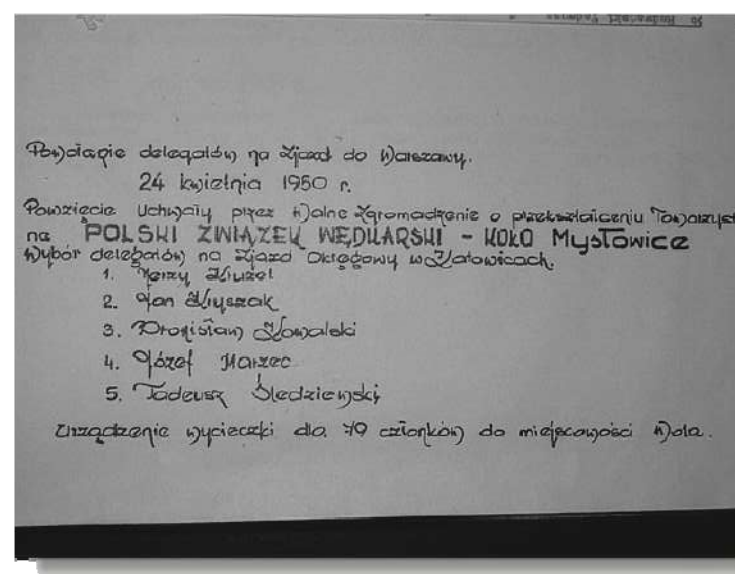 Powołanie delegatów na Zjazd do Warszawy.
24 kwietnia 1950 r.
Powzięcie Uchwały przez Walne Zgromadzenie o przekształceniu Towarzyst
na POLSKI ZWIĄZEK WĘDKARSKI - KOŁO Mysłowice
Wybór delegatów na Zjazd Okręgowy w Katowicach.
1. Jerzy
2. Jan Kryszak
3. Bronisław Kowalski
4. Józef Marzec
5. Tadeusz Śledziewski
Urządzenie wycieczki dla 70 członków do miejscowości Wola.